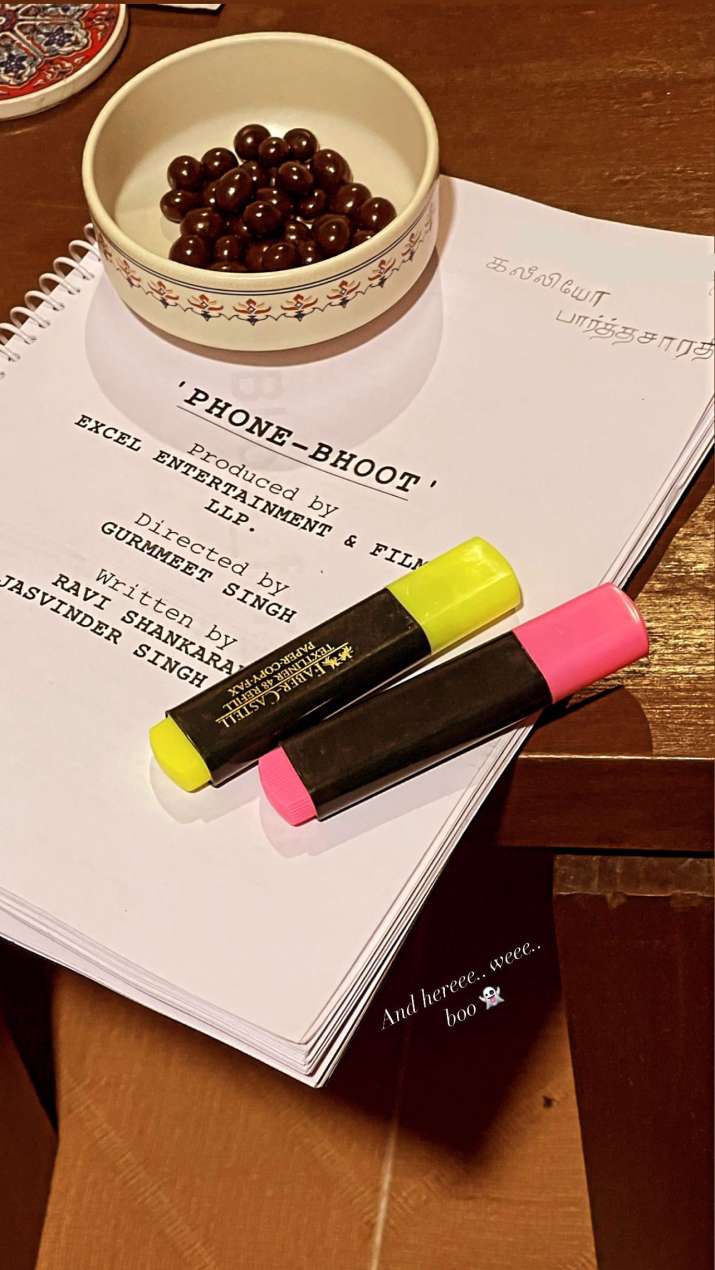 கலீலியோ
பார்த்தசாரதி
'PHONE-BHOOT'
Produced by
EXCEL ENTERTAINMENT & FILM
LLP.
Directed by
GURMMEET SINGH
Written by
RAVI SHANKARAN
JASVINDER SINGH
FABER-CASTELL
TEXTLINER 48 REFILL
PAPER-COPY-FAX
And hereee.. weee..
boo 👻